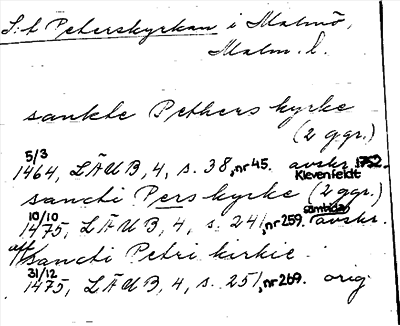 S:t Peterskyrkan i Malmö,
Malm. l.
sankte Pethers kyrke
(2 ggr.)
5/3
1464, LÄUB, 4, s. 38, nr 45. avskr. 1752.
Klevenfeldt
sancti Pers kyrke (2 ggr.)
10/10 samtidav
1475, LÄUB, 4, s. 241, nr 259. avskr.
aff sancti Petri kirkie
31/12
1475, LÄUB, 4, s. 251, nr 269. orig